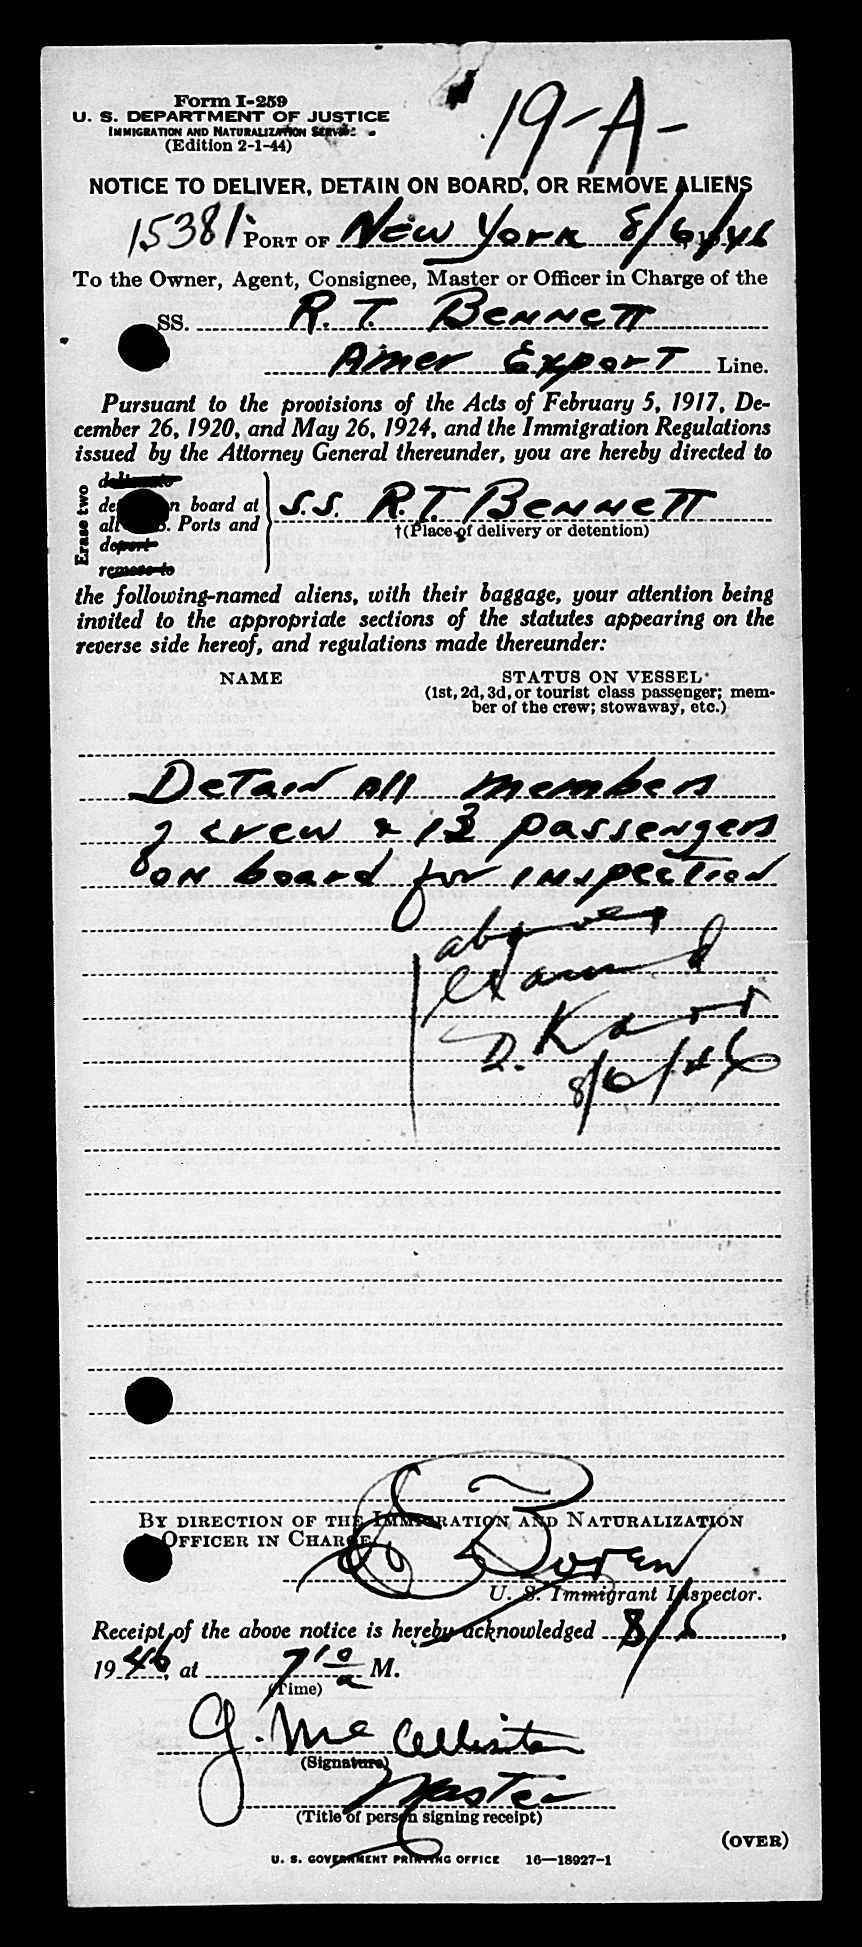 Form I-259
U. S. DEPARTMENT OF JUSTICE
IMMIGRATION AND NATURALIZATION SERVICE
(Edition 2-1-44)
19-A-
NOTICE TO DELIVER, DETAIN ON BOARD, OR REMOVE ALIENS
15381 PORT OF New York 8/6/46
To the Owner, Agent, Consignee, Master or Officer in Charge of the
SS. R. T. Bennett
Amer Export Line.
Pursuant to the provisions of the Acts of February 5, 1917, De-
cember 26, 1920, and May 26, 1924, and the Immigration Regulations
issued by the Attorney General thereunder, you are hereby directed to
Erase two
on board at
all Ports and
deport
remove to
S.S. R.T. Bennett
†(Place of delivery or detention)
the following-named aliens, with their baggage, your attention being
invited to the appropriate sections of the statutes appearing on the
reverse side hereof, and regulations made thereunder:
NAME STATUS ON VESSEL
(1st, 2d, 3d, or tourist class passenger; mem-
ber of the crew; stowaway, etc.)
Detain all members
of crew & 13 passengers
on board for inspection
above
examined
D. Karr
8/6/46
BY DIRECTION OF THE IMMIGRATION AND NATURALIZATION
OFFICER IN CHARGE
Boren
U. S. Immigrant Inspector.
Receipt of the above notice is hereby acknowledged 8/6,
1946, at 7 10 a M.
(Time)
G. McCallister
(Signature)
Master
(Title of person signing receipt)
(OVER)
U. S. GOVERNMENT PRINTING OFFICE 16—18927-1